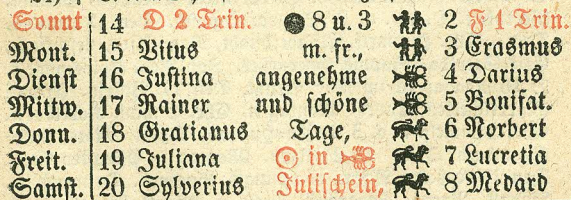 Sonnt 14 D 2 Trin. 8 u. 3 2 F 1 Trin.
Mont. 15 Vitus m. fr., 3 Erasmus
Dienst 16 Justina angenehme 4 Darius
Mittw. 17 Rainer und schöne 5 Bonifat.
Donn. 18 Gratianus Tage, 6 Norbert
Freit. 19 Juliana ☉ in ♋ 7 Lucretia
Samst. 20 Sylverius Julischein, 8 Medard